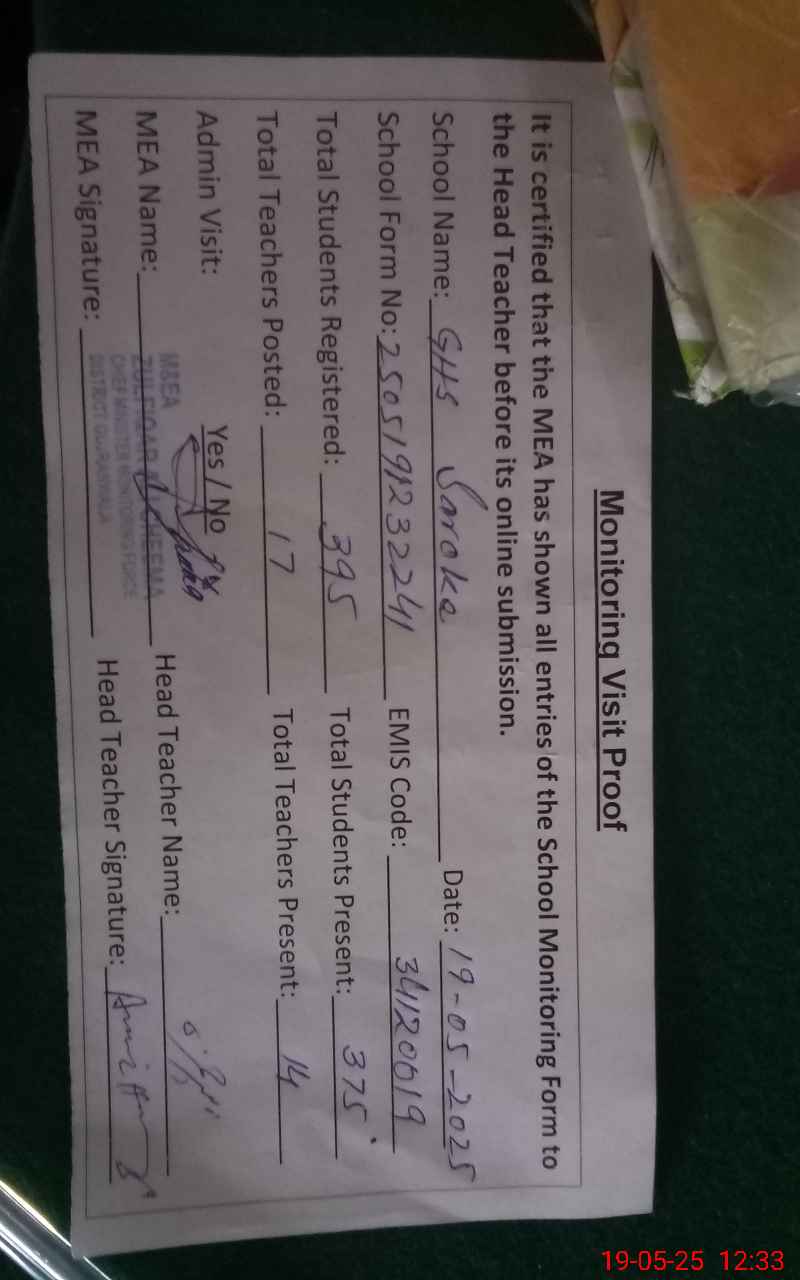 Monitoring Visit Proof
It is certified that the MEA has shown all entries of the School Monitoring Form to
the Head Teacher before its online submission.
School Name: GHS Saroke Date: 19-05-2025
School Form No: 2505191232241 EMIS Code: 34120019
Total Students Registered: 395 Total Students Present: 375
Total Teachers Posted: 17 Total Teachers Present: 14
Admin Visit: Yes / No
MEA Name: Head Teacher Name:
MEA Signature: Head Teacher Signature:
M&EA
ZULFIQAR CHEEMA
CHIEF MINISTER MONITORING FORCE
DISTRICT GUJRANWALA
19-05-25 12:33